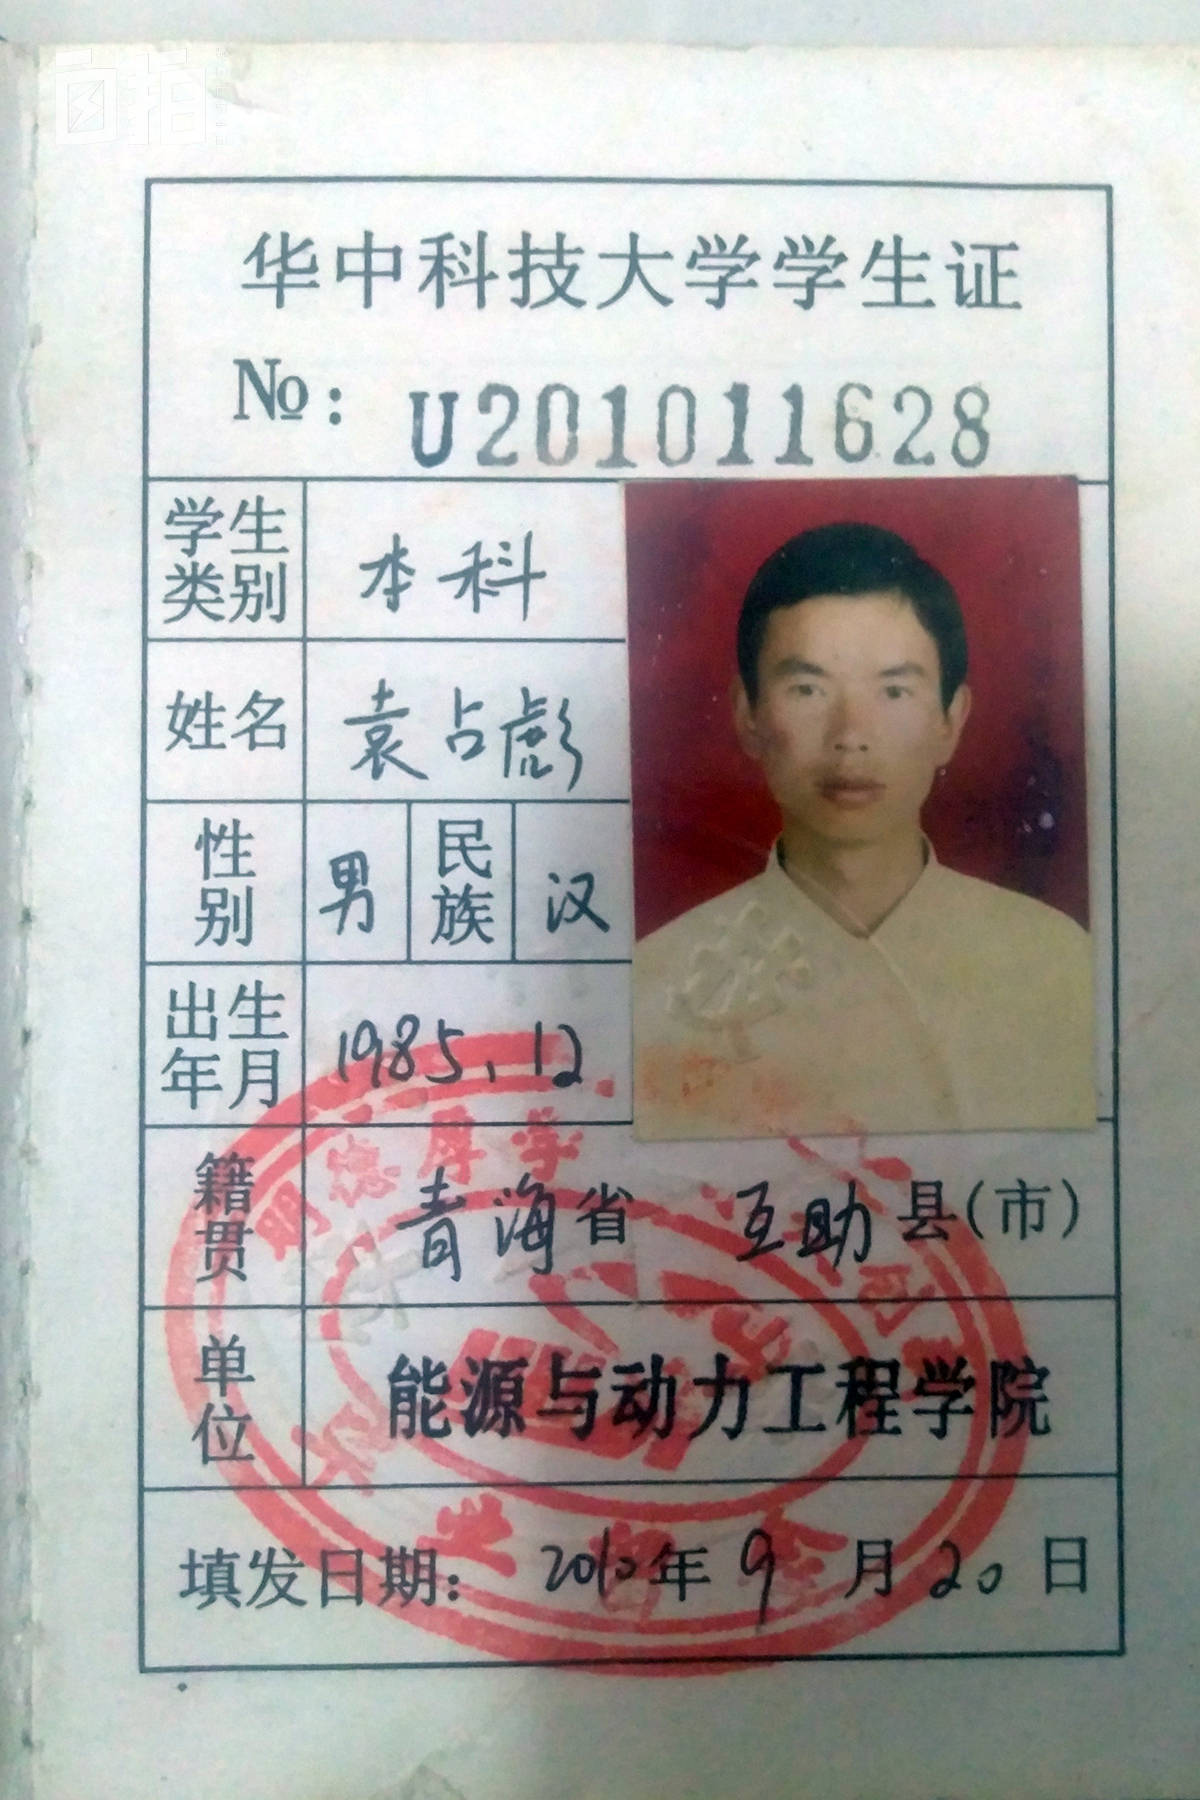 自拍
华中科技大学学生证
№：U201011628
学生类别 本科
姓名 袁占彪
性别 男 民族 汉
出生年月 1985.12
籍贯 青海省 互助县(市)
单位 能源与动力工程学院
填发日期：2010年9月20日
明德厚学